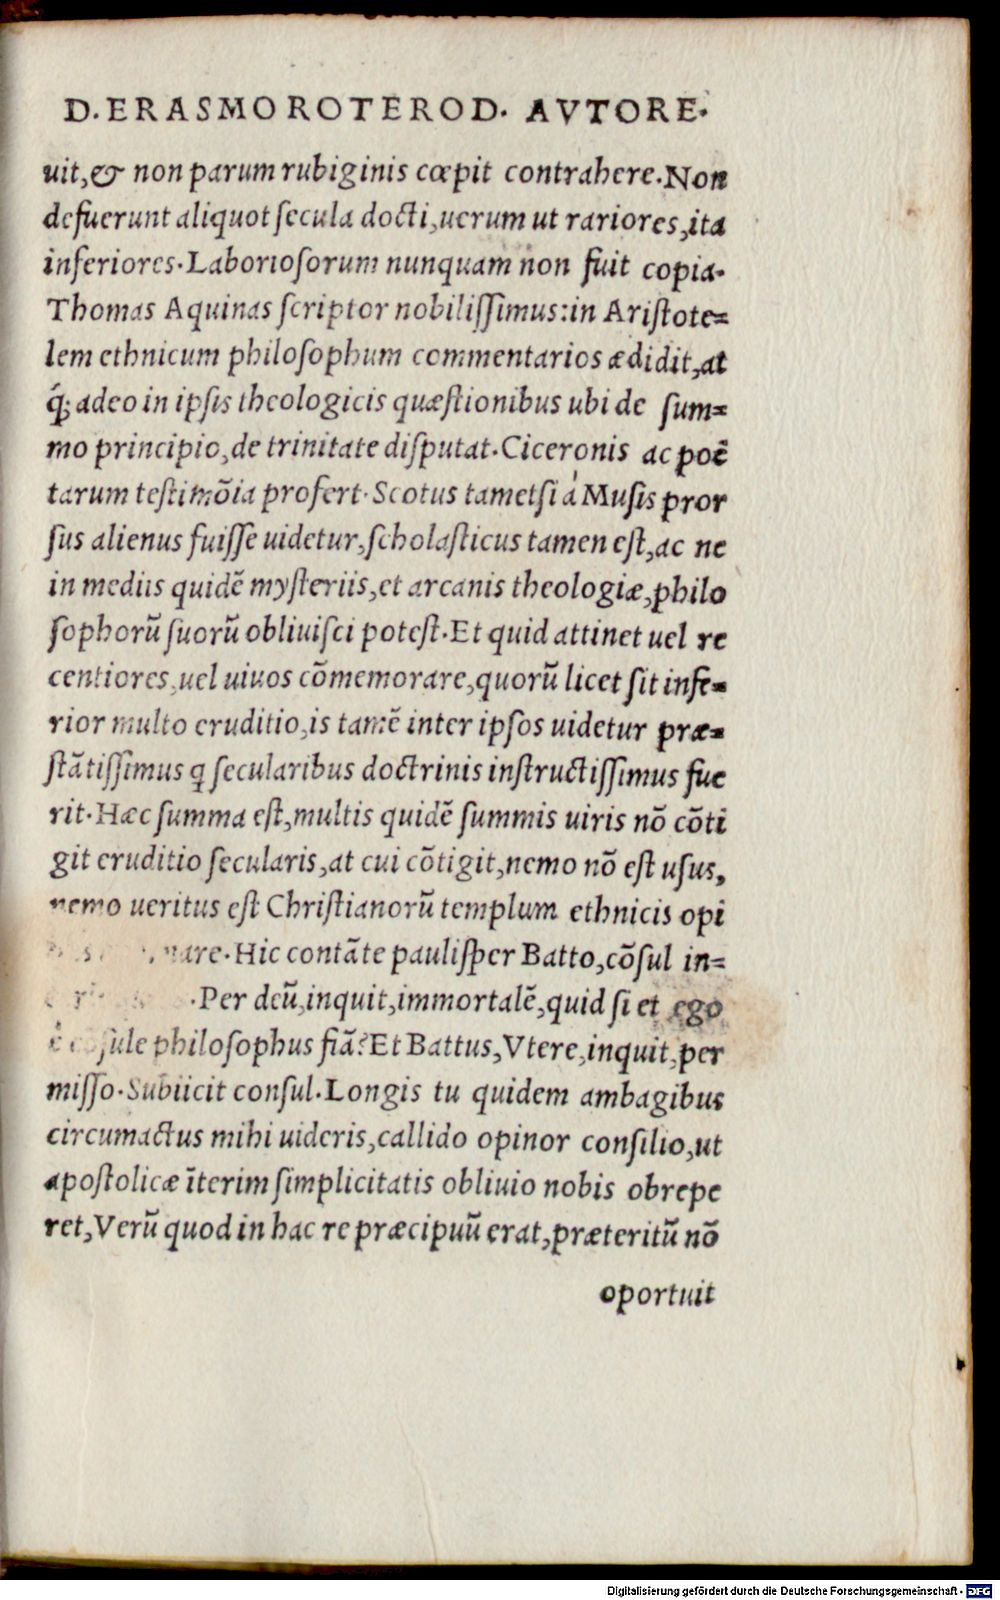 D. ERASMO ROTEROD. AVTORE.
uit, & non parum rubiginis cœpit contrahere. Non
defuerunt aliquot secula docti, uerum ut rariores, ita
inferiores. Laboriosorum nunquam non fuit copia.
Thomas Aquinas scriptor nobilissimus: in Aristote=
lem ethnicum philosophum commentarios ædidit, at
q́; adeo in ipsis theologicis quæstionibus ubi de sum=
mo principio, de trinitate disputat. Ciceronis ac poë
tarum testimōia profert. Scotus tametsi á Musis pror
sus alienus fuisse uidetur, scholasticus tamen est, ac ne
in mediis quidē mysteriis, et arcanis theologiæ, philo
sophorū suorū obliuisci potest. Et quid attinet uel re
centiores, uel uiuos cōmemorare, quorū licet sit infe=
rior multo eruditio, is tamē inter ipsos uidetur præ=
stātissimus q secularibus doctrinis instructissimus fue
rit. Hæc summa est, multis quidē summis uiris nō cōti
git eruditio secularis, at cui cōtigit, nemo nō est usus,
nemo ueritus est Christianorū templum ethnicis opi
Hic contāte paulisper Batto, cōsul in=
Per deū, inquit, immortalē, quid si et ego
philosophus fiā? Et Battus, Vtere, inquit, per
misso. Subiicit consul. Longis tu quidem ambagibus
circumactus mihi uideris, callido opinor consilio, ut
apostolicæ īterim simplicitatis obliuio nobis obrepe
ret, Verū quod in hac re præcipuū erat, præteritū nō
oportuit
Digitalisierung gefördert durch die Deutsche Forschungsgemeinschaft - DFG